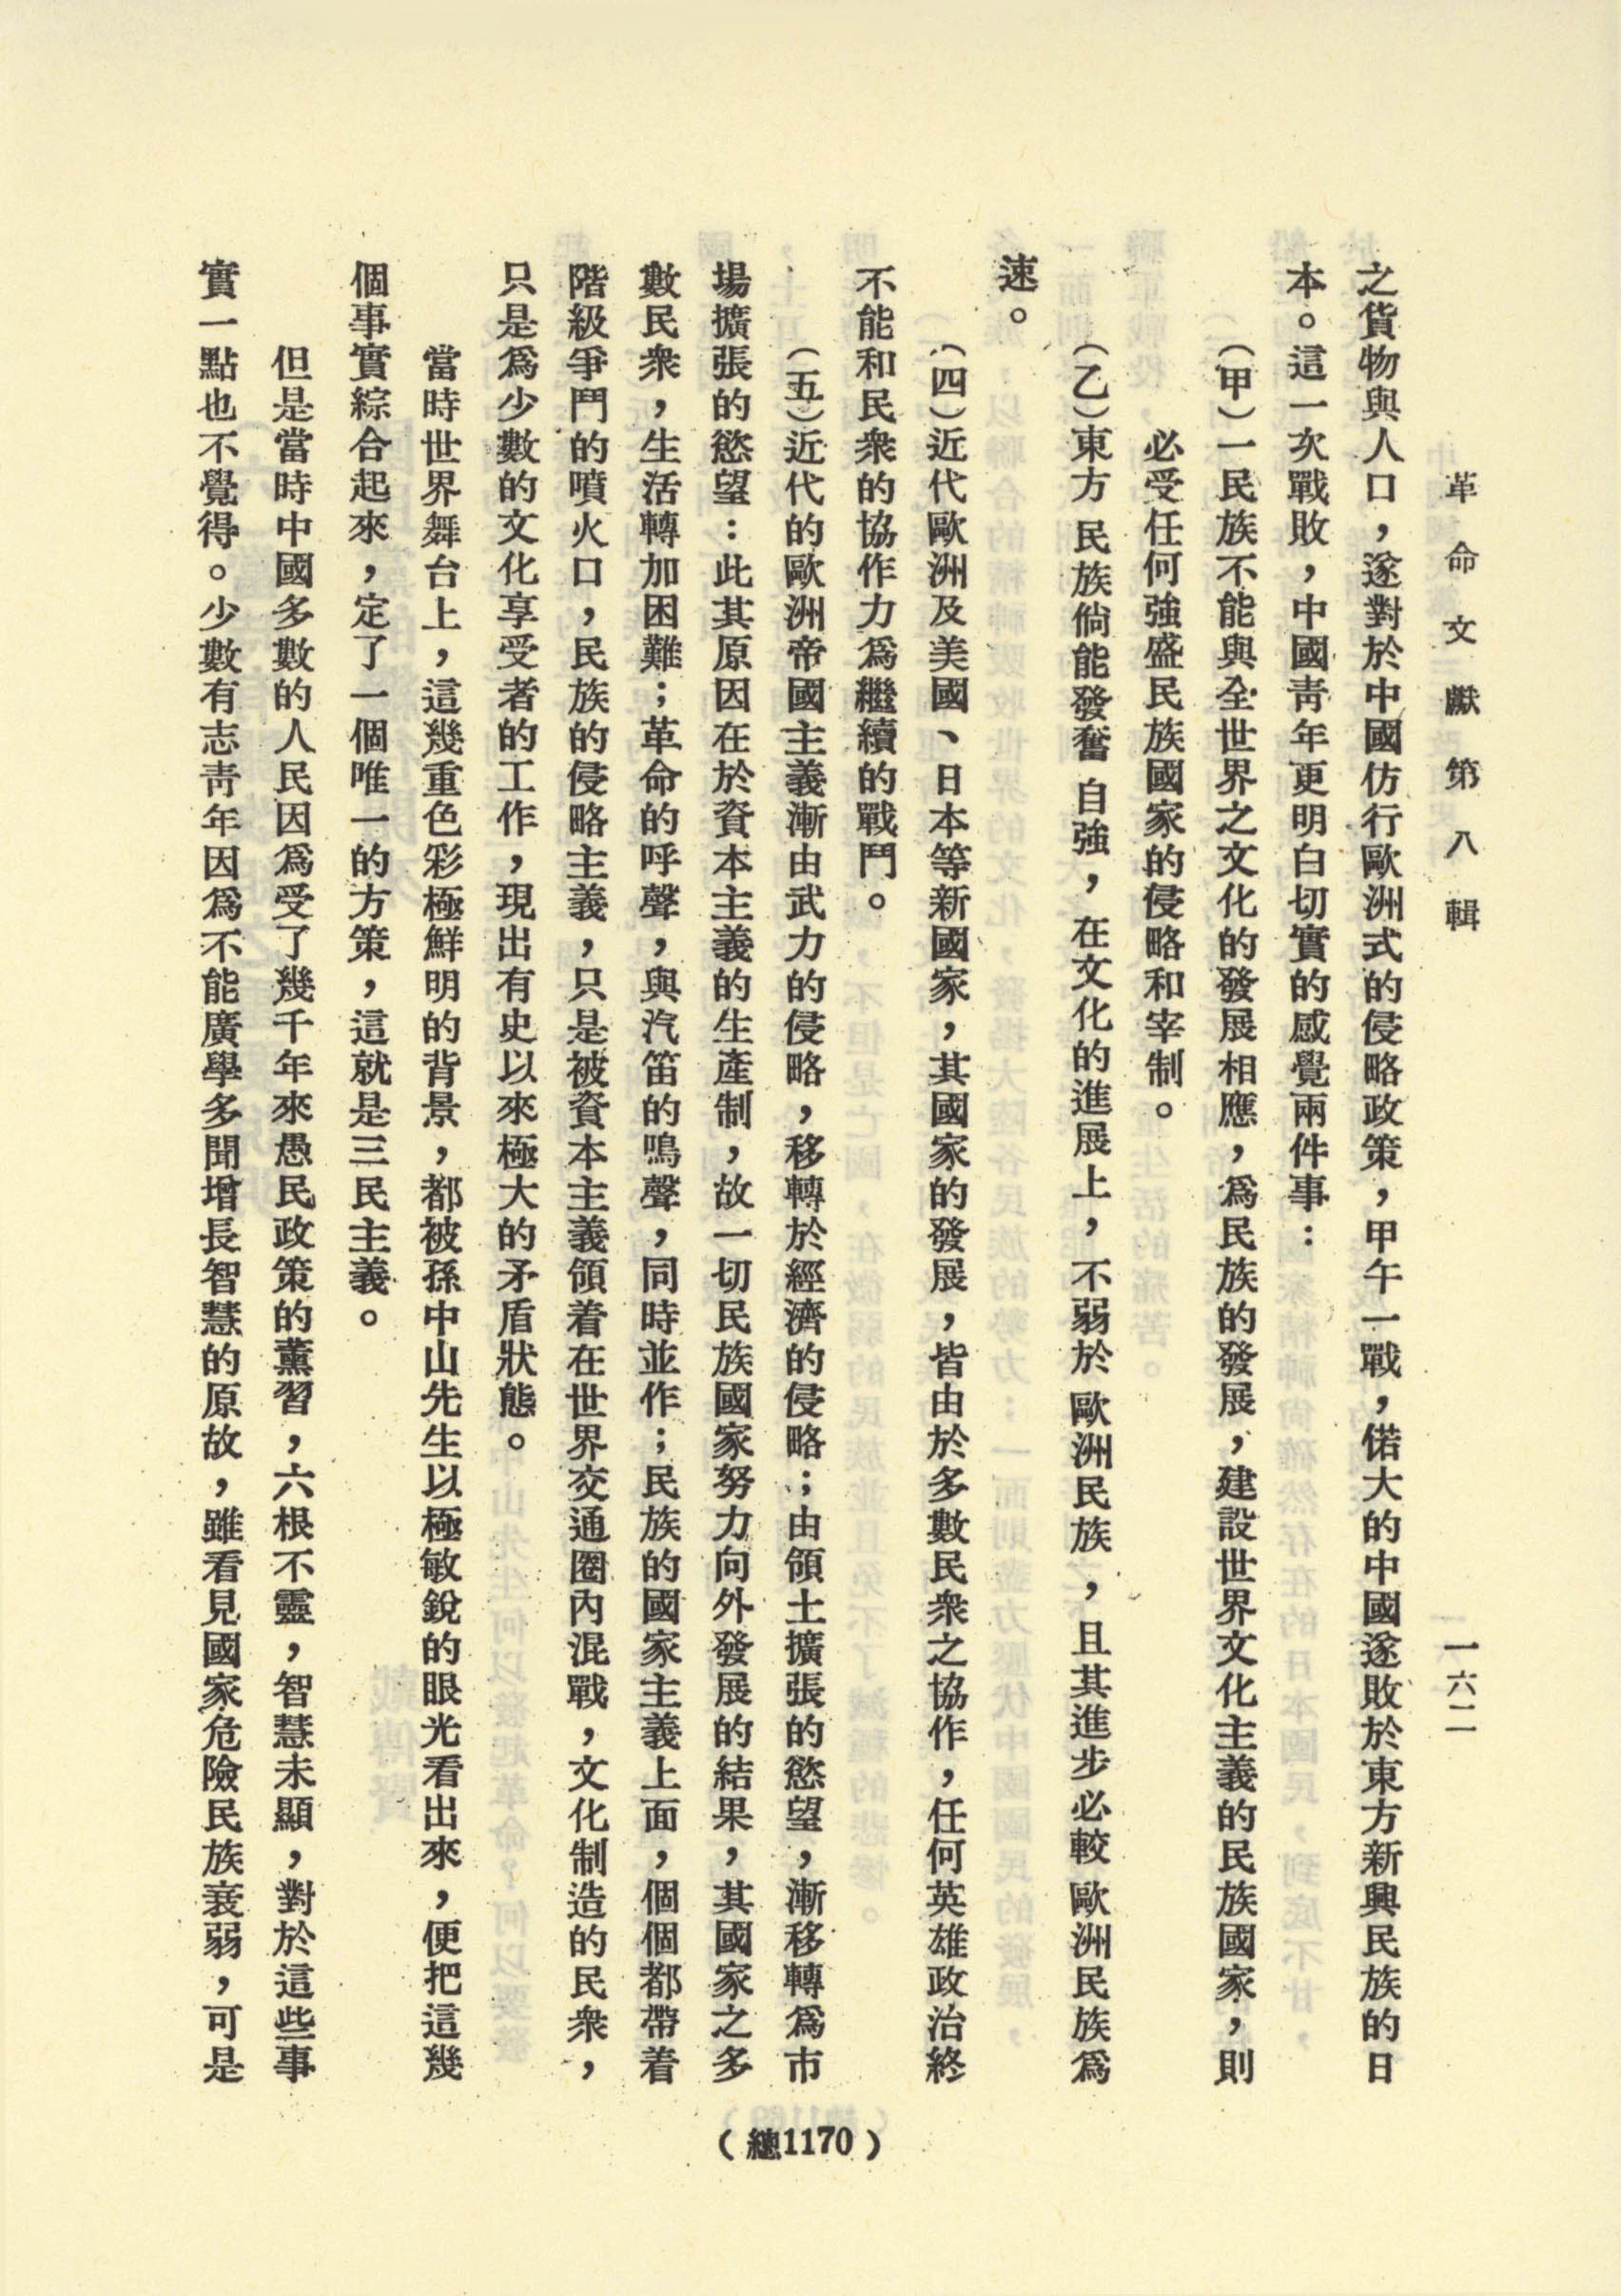 革命文獻第八輯
一六二
之貨物與人口，遂對於中國仿行歐洲式的侵略政策，甲午一戰，偌大的中國遂敗於東方新興民族的日
本。這一次戰敗，中國靑年更明白切實的感覺兩件事：
（甲）一民族不能與全世界之文化的發展相應，爲民族的發展，建設世界文化主義的民族國家，則
必受任何強盛民族國家的侵略和宰制。
（乙）東方民族倘能發奮自強，在文化的進展上，不弱於歐洲民族，且其進步必較歐洲民族爲
速。
（四）近代歐洲及美國、日本等新國家，其國家的發展，皆由於多數民衆之協作，任何英雄政治終
不能和民衆的協作力爲繼續的戰鬥。
（五）近代的歐洲帝國主義漸由武力的侵略，移轉於經濟的侵略；由領土擴張的慾望，漸移轉爲市
場擴張的慾望：此其原因在於資本主義的生產制，故一切民族國家努力向外發展的結果，其國家之多
數民衆，生活轉加困難；革命的呼聲，與汽笛的鳴聲，同時並作；民族的國家主義上面，個個都帶着
階級爭鬥的噴火口，民族的侵略主義，只是被資本主義領着在世界交通圈內混戰，文化制造的民衆，
只是爲少數的文化享受者的工作，現出有史以來極大的矛盾狀態。
當時世界舞台上，這幾重色彩極鮮明的背景，都被孫中山先生以極敏銳的眼光看出來，便把這幾
個事實綜合起來，定了一個唯一的方策，這就是三民主義。
但是當時中國多數的人民因爲受了幾千年來愚民政策的薰習，六根不靈，智慧未顯，對於這些事
實一點也不覺得。少數有志靑年因爲不能廣學多聞增長智慧的原故，雖看見國家危險民族衰弱，可是
（總1170）